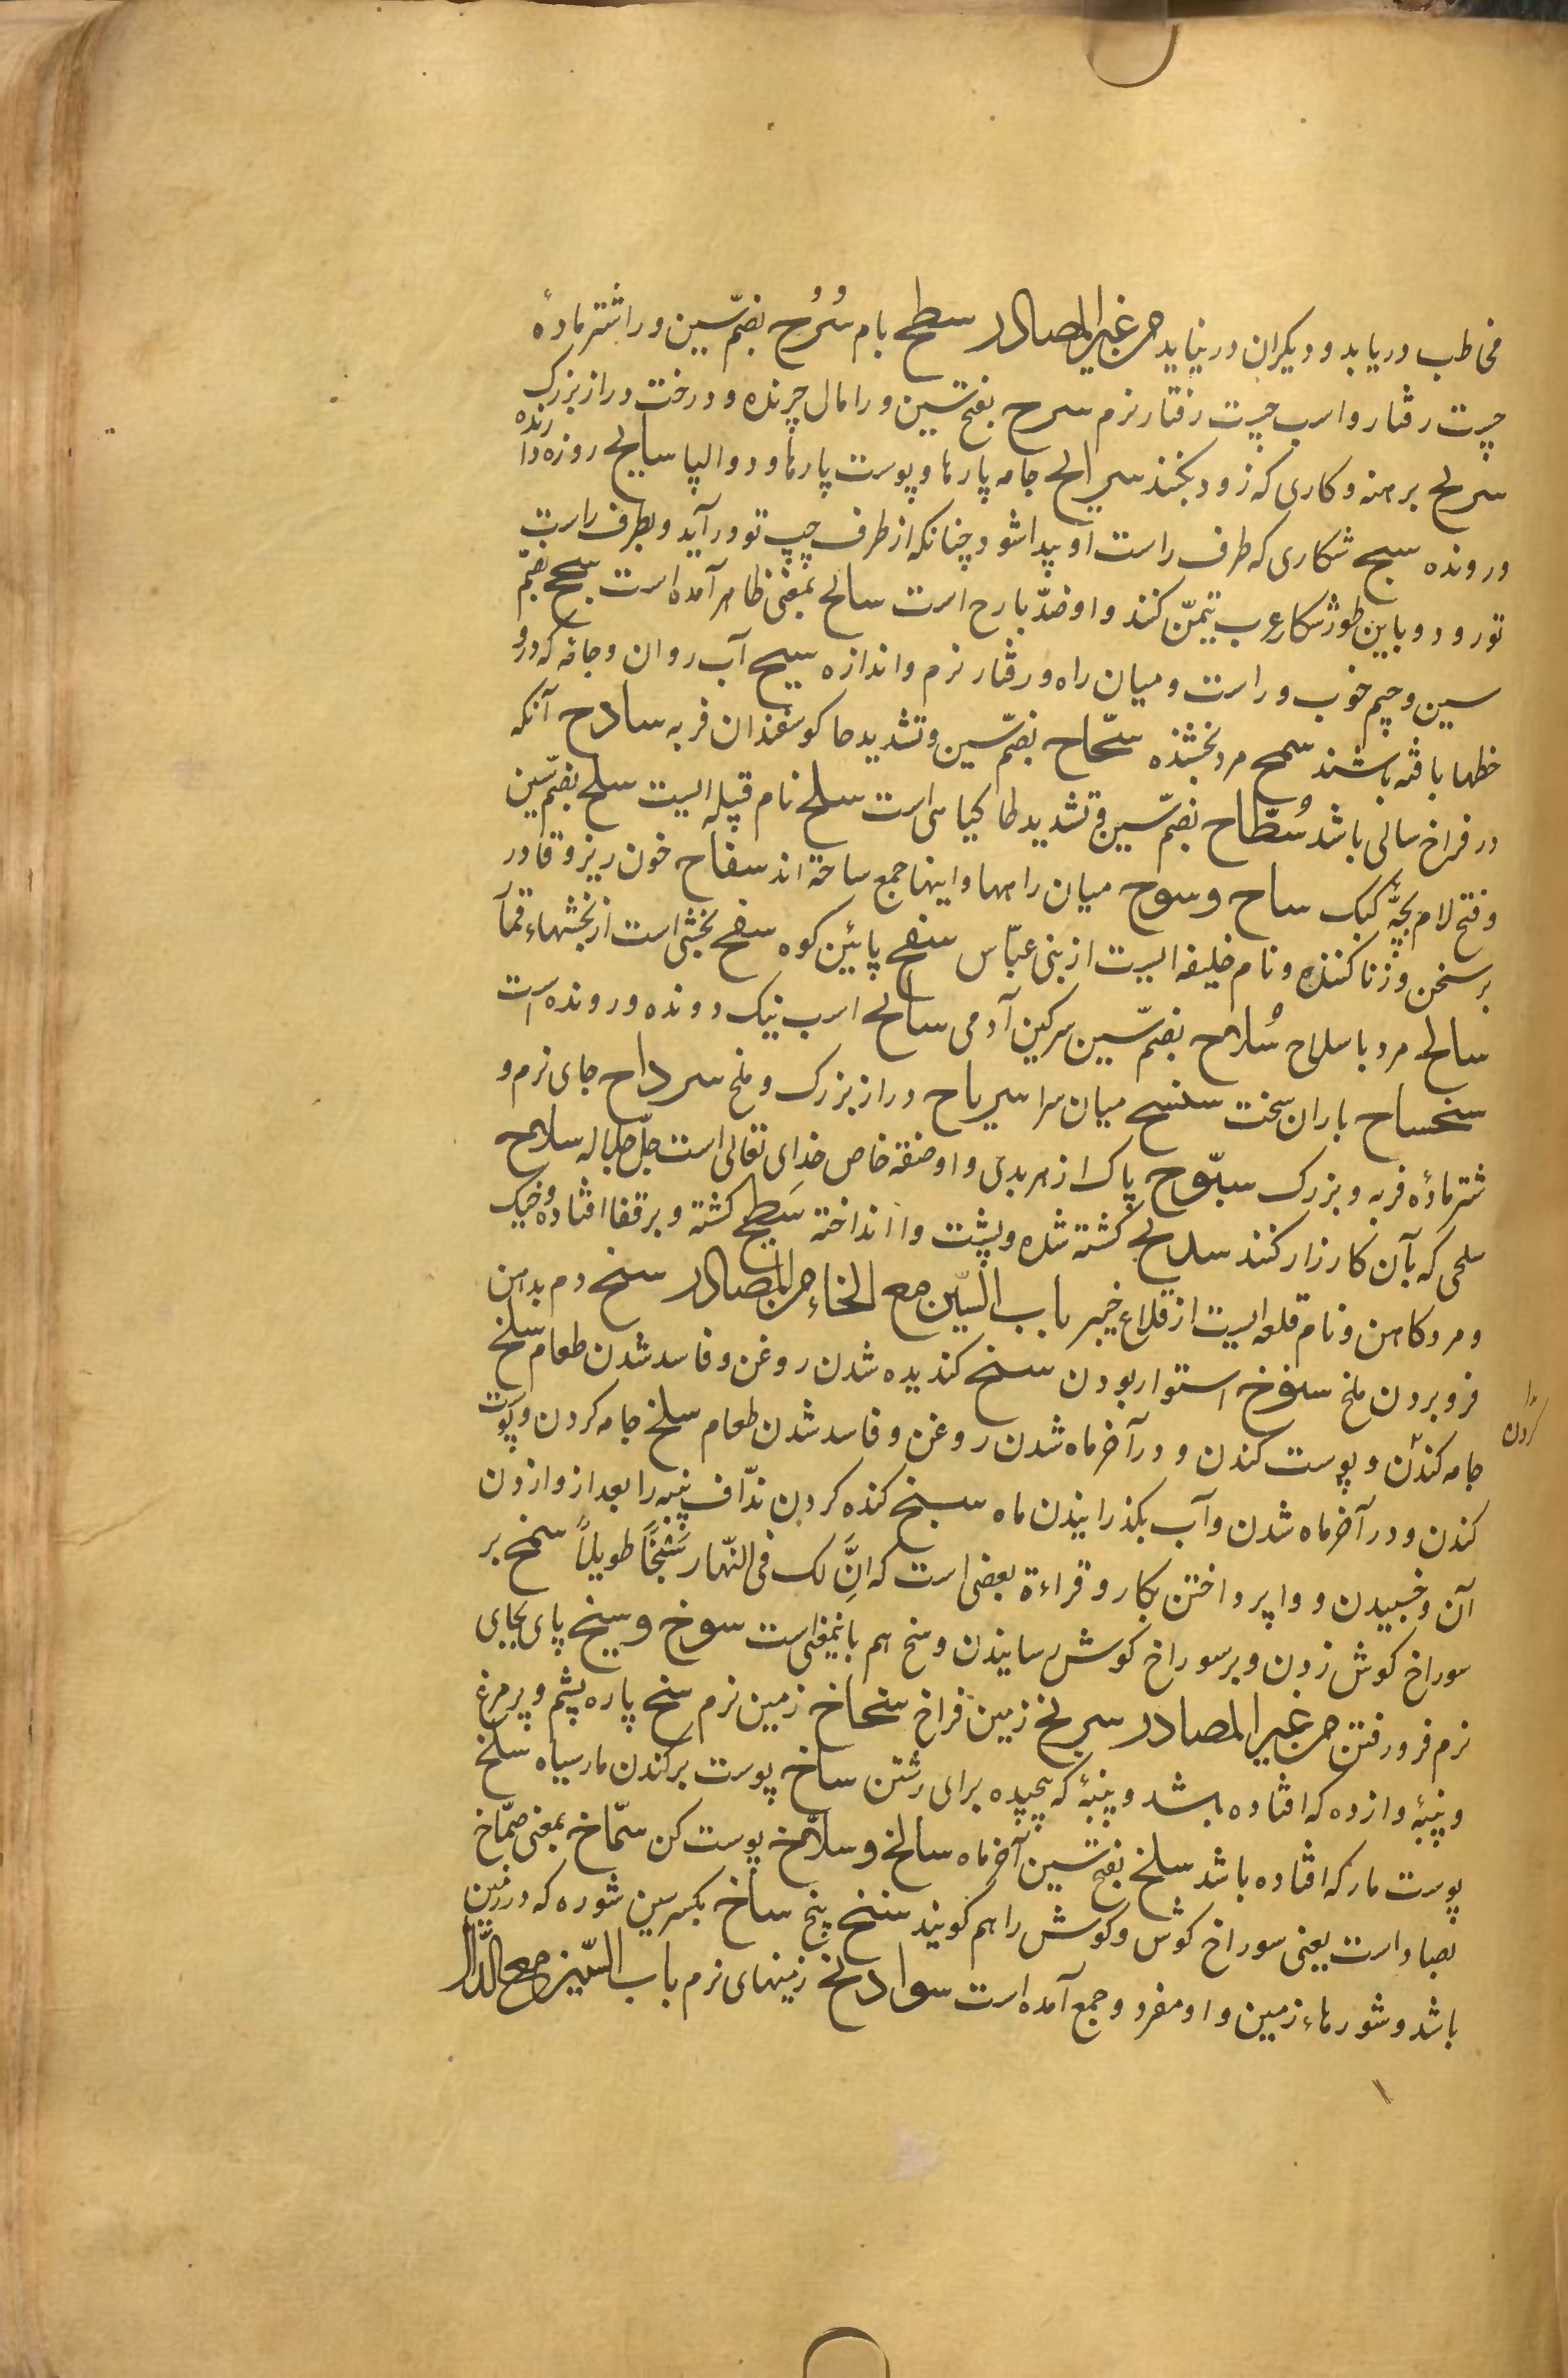 مخاطب دریابد و دیکران درنیابد من غیر المصادر سطح بام سُرُح بضمّ سین و را شتر مادهٔ
چست رفتار و اسب چست رفتار نرم سرح بفتح سین و را مال چرنده و درخت دراز بزرک
سریح برهنه و کاری که زود بکنند سرایح جامه پارها و پوست پارها و دوالها سایح روزه دارنده
و رونده سنح شکاری که طرف راست او پیدا شود چنانکه از طرف چپ تو درآید و بطرف راست
تو رود و باین طور شکار عرب تیمّن کنند و او ضدّ بارح است سانح بمعنی ظاهر آمده است سجح بضمّ
سین و جیم خوب و راست و میان راه و رفتار نرم و اندازه سیح آب روان و جامه که درو
خطها بافته باشند سمح مرد بخشنده سحّاح بضمّ سین و تشدید حا کوسفندان فربه سادح آنکه
در فراخ سالی باشد سُطّاح بضمّ سین و تشدید طا کیاهی است سلح نام قبیله ایست سلح بضمّ سین
و فتح لام بچّهٔ کبک ساح و سوح میان راهها و اینها جمع ساحة اند سفّاح خون ریز و قادر
بر سخن و زنا کننده و نام خلیفه ایست از بنی عبّاس سفح پائین کوه سفح بخشی است از بخشهاء قمار
سالح مرد با سلاح سُلاح بضمّ سین سرکین آدمی سابح اسب نیک دونده و رونده است
سحساح باران سخت سنسح میان سرا سریاح دراز بزرک و ملخ سرداح جای نرم و
شتر مادهٔ فربه و بزرک سبّوح پاک از هر بدی و او صفة خاص خدای تعالی است جلّ جلاله سلاح
سلحی که بآن کارزار کنند سدیح کشته شده و بپشت وا انداخته سَطیح کشته و بر قفا افتاده و خیک
و مرد کاهن و نام قلعه ایست از قلاع خیبر باب السّین مع الخاء من المصادر سنخ دم بدهن
فرو بردن ملخ سنوخ استوار بودن سنخ کندیده شدن روغن و فاسد شدن طعام سلخ
جامه کندن و پوست کندن و در آخر ماه شدن روغن و فاسد شدن طعام سلخ جامه کردن و پوست
کندن و در آخر ماه شدن و آب بکذرانیدن ماه سبخ کنده کردن ندّاف پنبه را بعد از وازدن
آن و خسبیدن و واپرداختن بکار و قراءة بعضی است که انَّ لک فی النّهار سَبْخًا طویلاً سمخ بر
سوراخ کوش زدن و بر سوراخ کوش رسانیدن و سخ هم باینمعنی است سوخ و سیخ پای بجای
نرم فرو رفتن من غیر المصادر سربخ زمین فراخ سخاخ زمین نرم سبخ پاره پشم و پر مرغ
و پنبهٔ وازده که افتاده باشد و پنبهٔ که پیچیده برای رشتن ساخ پوست برکندن مار سیاه سلخ
پوست مار که افتاده باشد سلخ بفتح سین آخر ماه سالخ و سلاّخ پوست کن سمّاخ بمعنی صمّاخ
بصاد است یعنی سوراخ کوش و کوش را هم کویند سنخ بیخ ساخ بکسر سین شوره که در زمین
باشد و شورهاء زمین و او مفرد و جمع آمده است سوادخ زمینهای نرم باب السّین مع الدّال
کردن